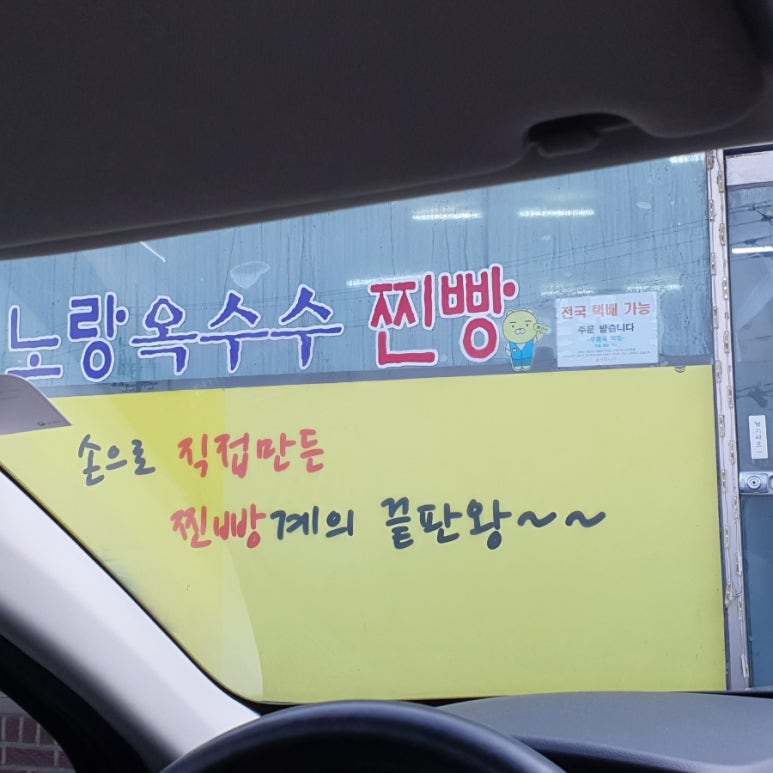 노랑옥수수 찐빵
전국 택배 가능
주문 받습니다
손으로 직접만든
찐빵계의 끝판왕~~